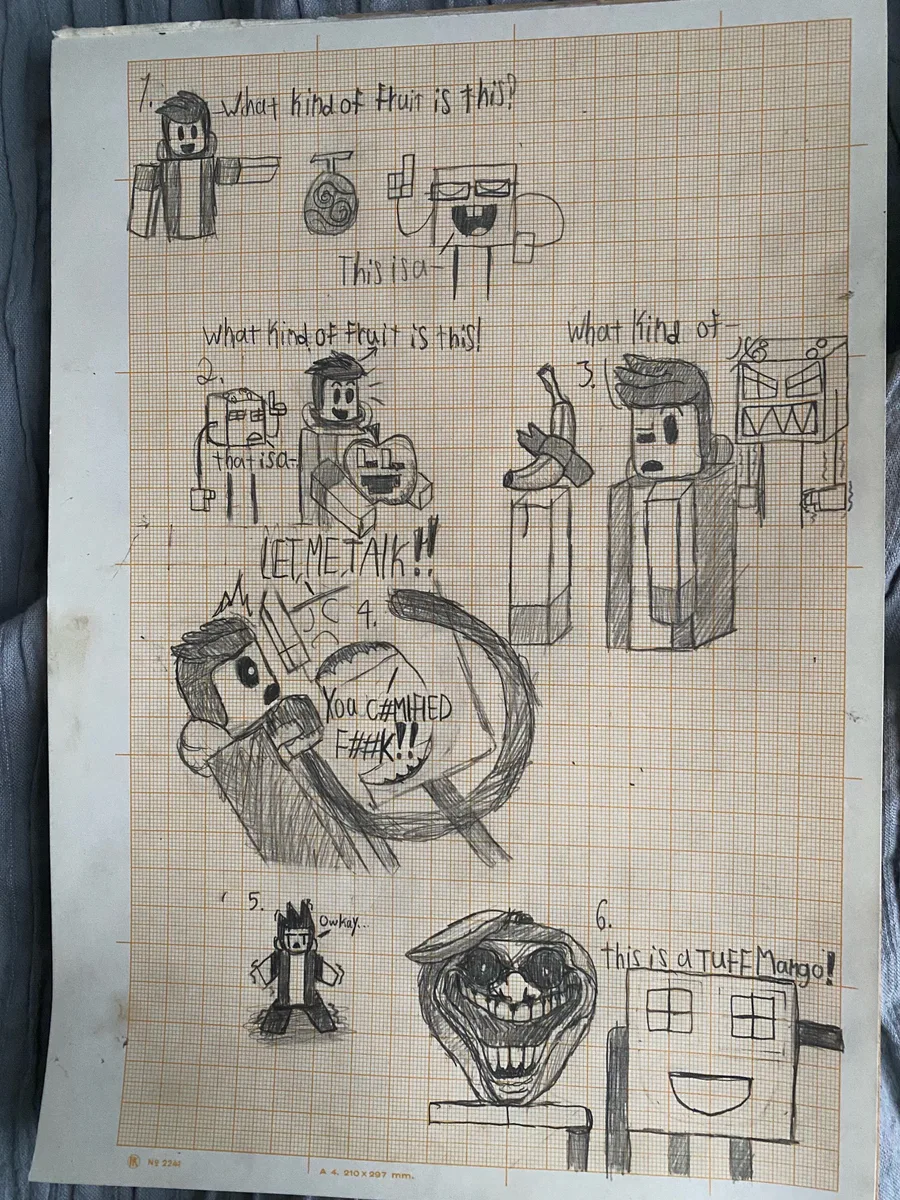 1.
What kind of Fruit is this?
This is a-
What kind of Fruit is this!
2.
that is a-
What kind of-
3.
LET, ME, TALK!!
4.
You C#MIFIED
F##K!!
5.
Owkay...
6.
this is a TUFF Mango!
Nº 2244
A 4. 210 x 297 mm.